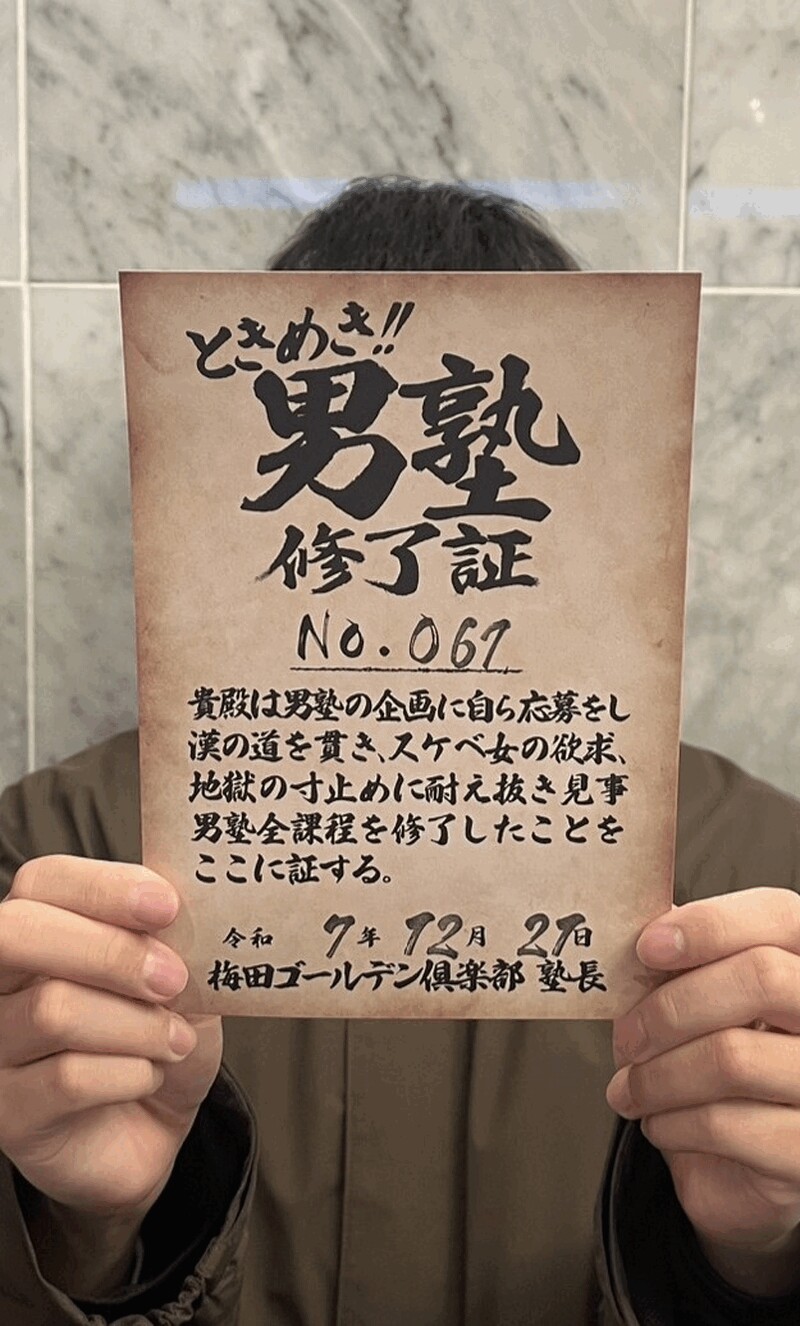 ときめき!!
男塾
修了証
No.067
貴殿は男塾の企画に自ら応募をし
漢の道を貫き、スケベ女の欲求、
地獄の寸止めに耐え抜き見事
男塾全課程を修了したことを
ここに証する。
令和 7年 12月 27日
梅田ゴールデン倶楽部 塾長